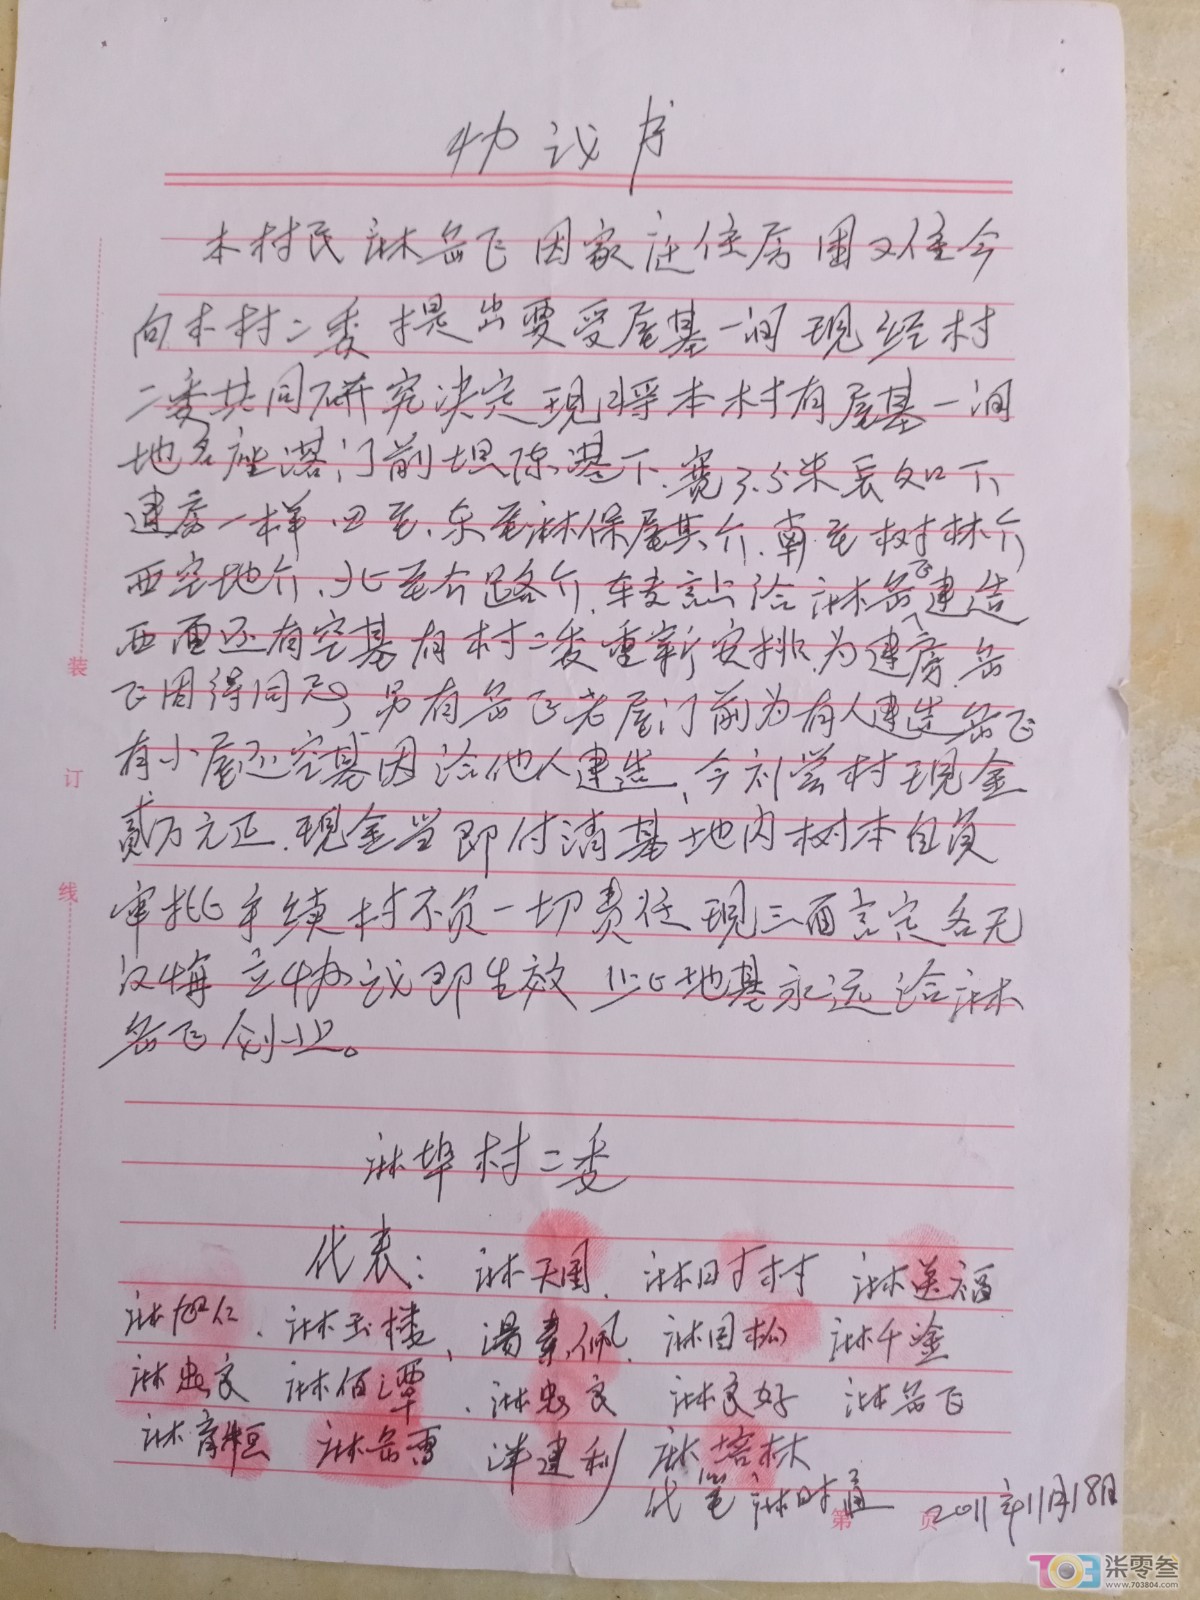 协议书
本村民麻岳飞因家庭住房困又住今
向本村二委提出要受屋基一间现经村
二委共同研究决定现将本村有屋基一间
地名座落门前垟陈港下.宽3.5米长如下
建房一样四至.东至麻保屋其介.南至树林介
西空地介.北至介路介.转卖给麻岳飞建造
西面还有空基有村二委重新安排.为建房岳
飞因得同 另有岳飞老屋门前为有人建造岳飞
有小屋还空基因给他人建造,今补尝村现金
贰万元正.现金当即付清基地内树本自负
审批手续村不负一切责任现三面言定各无
反悔立协议即生效 此地基永远给麻
岳飞创业。
麻埠村二委
代表: 麻天国. 麻时村 麻送福
麻旭仁. 麻玉楼, 汤素佩. 麻国松 麻千金
麻忠良 麻伯谭. 麻忠良 麻良好 麻岳飞
麻育恒 麻岳雷 洋建利 麻培林
代笔麻时通 2011年11月18日
第 页
装
订
线
703 柒零叁
www.703804.com